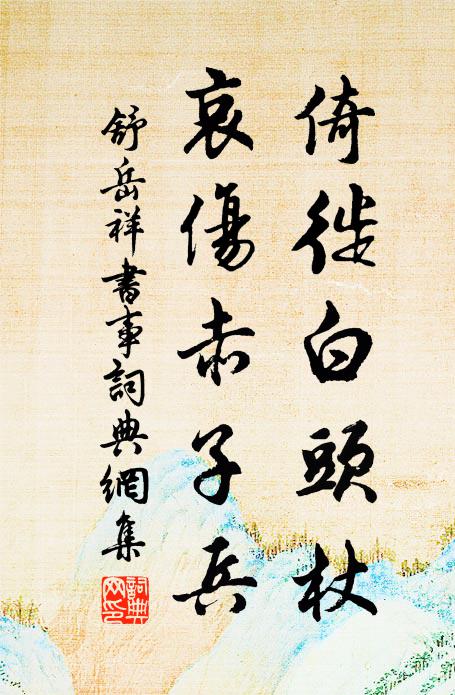 倚徙白頭杖
哀傷赤子兵
舒岳祥書事詞典網集
詞典網印